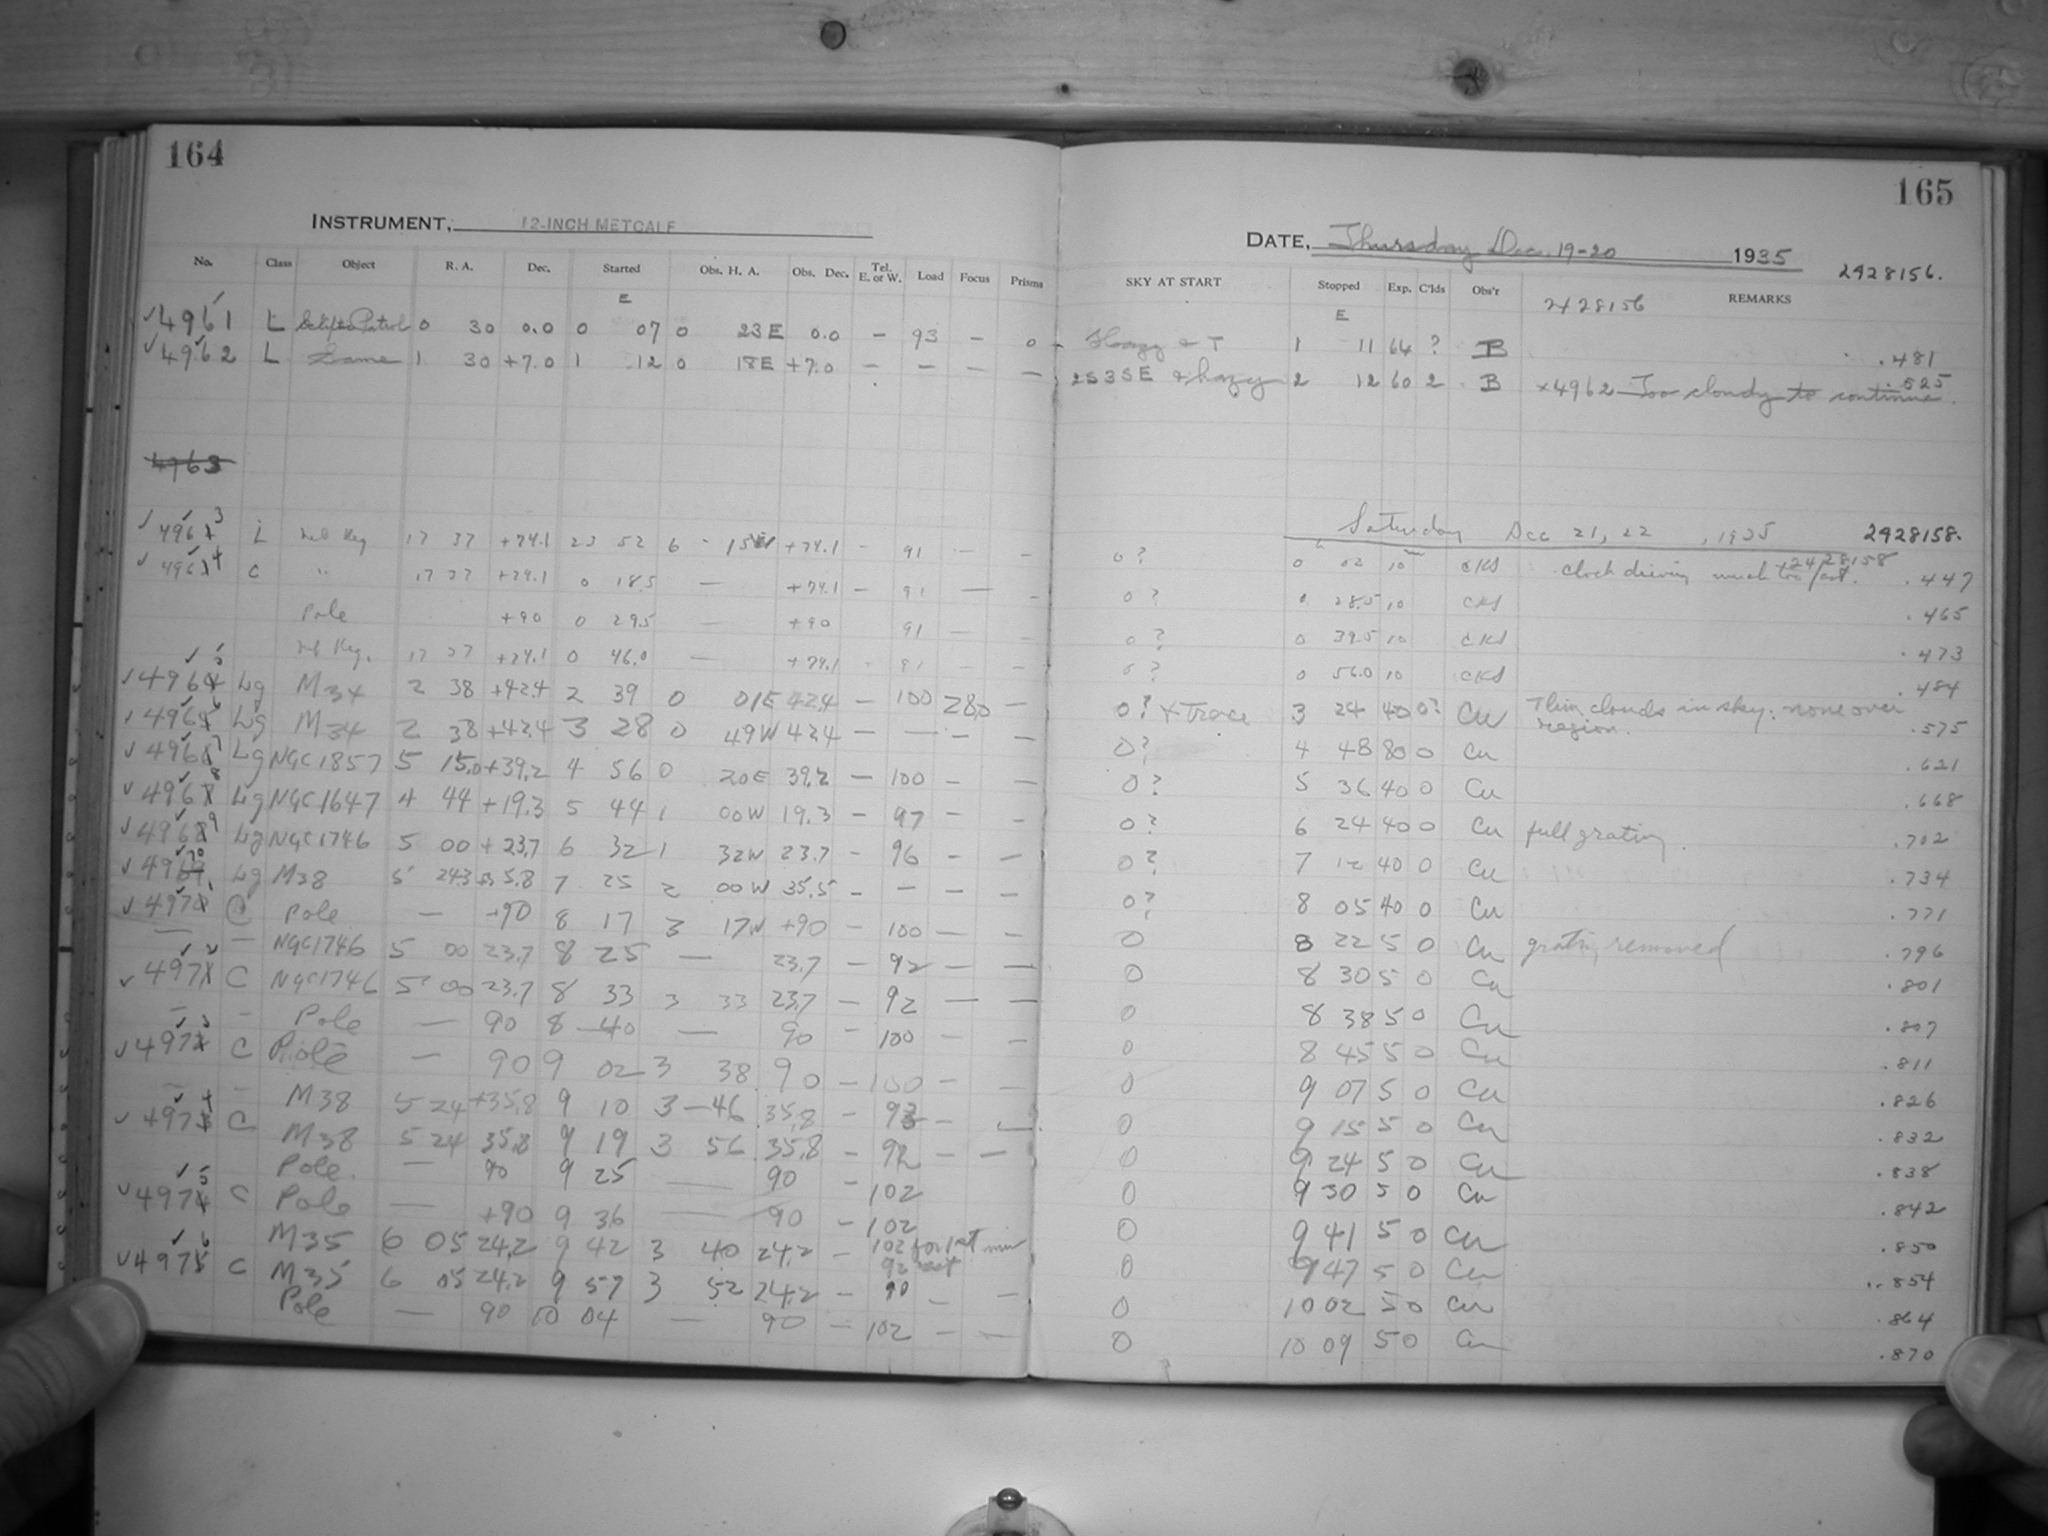 164
165
INSTRUMENT, 12-INCH METCALF
DATE, Thursday Dec. 19-20 1935 2428156.
No. Class Object R. A. Dec. Started Obs. H. A. Obs. Dec. Tel. E. or W. Load Focus Prisms SKY AT START Stopped Exp. C'lds Obs'r REMARKS
E E 2428156
4961 L Patrol 0 30 0.0 0 07 0 23E 0.0 – 93 – 0 Hazy & T 1 11 64 ? B .481
4962 L Same 1 30 +7.0 1 12 0 18E +7.0 – – – – 2S3SE & hazy 2 12 60 2 B ×4962 Too cloudy to continue. .525
4963
Saturday Dec 21, 22, 1935 2428158.
4963 L 17 37 +74.1 23 52 6 +74.1 – 91 – – 0? 0 02 10 CKS clock driving much too fast. 2428158 .447
4964 C " 17 37 +74.1 0 18.5 – +74.1 – 91 – – 0? 0 28.5 10 CKS .465
Pole +90 0 29.5 – +90 91 – – 0? 0 39.5 10 CKS .473
17 37 +74.1 0 46.0 – +74.1 – 91 – – 0? 0 56.0 10 CKS .484
4965 Lg M34 2 38 +42.4 2 39 0 01E 42.4 – 100 28.0 – 0? + Trace 3 24 40 0? Cu Thin clouds in sky: none over region. .575
4966 Lg M34 2 38 +42.4 3 28 0 49W 42.4 – – – – 0? 4 48 80 0 Cu .621
4967 Lg NGC1857 5 15.0 +39.2 4 56 0 20E 39.2 – 100 – – 0? 5 36 40 0 Cu .668
4968 Lg NGC1647 4 44 +19.3 5 44 1 00W 19.3 – 97 – – 0? 6 24 40 0 Cu full grating. .702
4969 Lg NGC1746 5 00 +23.7 6 32 1 32W 23.7 – 96 – – 0? 7 12 40 0 Cu .734
4970 Lg M38 5 24.3 35.8 7 25 2 00W 35.5 – – – – 0? 8 05 40 0 Cu .771
4971 C Pole – +90 8 17 3 17W +90 – 100 – – 0 8 22 5 0 Cu grating removed .796
– – NGC1746 5 00 23.7 8 25 – 23.7 – 92 – – 0 8 30 5 0 Cu .801
4972 C NGC1746 5 00 23.7 8 33 3 33 23.7 – 92 – – 0 8 38 5 0 Cu .807
– – Pole – 90 8 40 – 90 – 100 – – 0 8 45 5 0 Cu .811
4973 C Pole – 90 9 02 3 38 90 – 100 – – 0 9 07 5 0 Cu .826
– – M38 5 24 +35.8 9 10 3 46 35.8 – 93 – – 0 9 15 5 0 Cu .832
4974 C M38 5 24 35.8 9 19 3 56 35.8 – 92 – – 0 9 24 5 0 Cu .838
Pole. – 90 9 25 – 90 – 102 0 9 30 5 0 Cu .842
4975 C Pole – +90 9 36 – 90 – 102 0 9 41 5 0 Cu .850
M35 6 05 24.2 9 42 3 40 24.2 – 102 for 1st min 92 rest 0 9 47 5 0 Cu .854
4976 C M35 6 05 24.2 9 57 3 52 24.2 – 90 – – 0 10 02 5 0 Cu .864
Pole – 90 10 04 – 90 – 102 – – 0 10 09 5 0 Cu .870